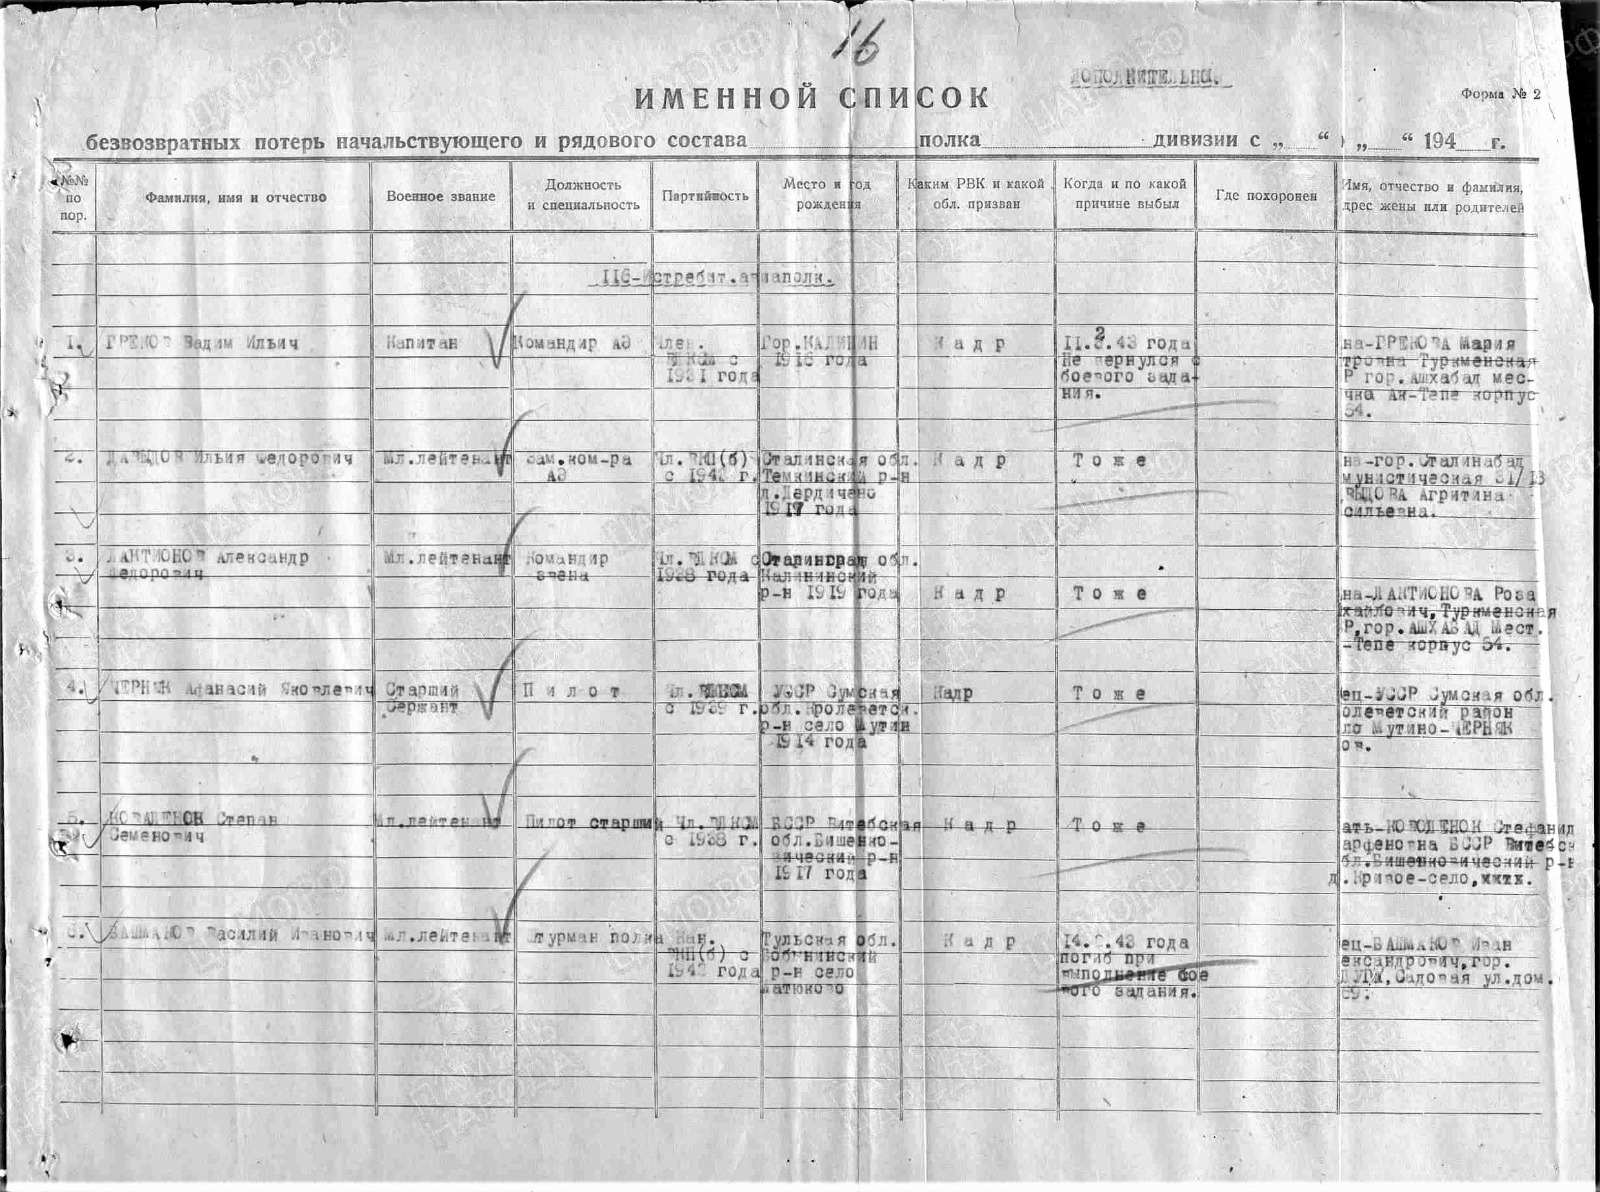 16
ДОПОЛНИТЕЛЬНЫ.
ИМЕННОЙ СПИСОК
Форма № 2
безвозвратных потерь начальствующего и рядового состава полка дивизии с „ “ „ “ 194 г.
№№ по пор.
Фамилия, имя и отчество
Военное звание
Должность и специальность
Партийность
Место и год рождения
Каким РВК и какой обл. призван
Когда и по какой причине выбыл
Где похоронен
Имя, отчество и фамилия,
дрес жены или родителей
116-Истребит.авиаполк.
1. ГРЕКОВ Вадим Ильич
Капитан
Командир АЭ
Член.
ВЛКСМ с
1931 года
Гор.КАЛИНИН
1916 года
К а д р
11.2.43 года
Не вернулся с
боевого зада-
ния.
на-ГРЕКОВА Мария
тровна Туркменская
Р гор.Ашхабад мес-
чко Ак-Тепе корпус
54.
2. ДАВЫДОВ Илья Федорович
Мл.лейтенант
Зам.ком-ра
АЭ
Чл.ВКП(б)
с 1942 г.
Сталинская обл.
Темкинский р-н
1917 года
К а д р
Т о ж е
на-гор.Сталинабад
мунистическая 31/13
ВЫДОВА Агритина
сильевна.
3. ЛАКТИОНОВ Александр
Федорович
Мл.лейтенант
Командир
звена
Чл.ВЛКСМ с
1938 года
Сталинград обл.
Калининский
р-н 1919 года
К а д р
Т о ж е
на-ЛАКТИОНОВА Роза
хайлович,Туркменская
Р,гор.АШХАБАД Мест.
-Тепе корпус 54.
4. ЧЕРНЯК Афанасий Яковлевич
Старший
Сержант
П и л о т
Чл.ВЛКСМ
с 1939 г.
УССР Сумская
обл.Кролеветск.
р-н село Мутин
1914 года
Кадр
Т о ж е
ец-УССР Сумская обл.
олеветский район
ло Мутино-ЧЕРНЯК
ов.
5. КОВАЛЕНОК Степан
Семенович
Мл.лейтенант
Пилот старший
Чл.ВЛКСМ
с 1938 г.
БССР Витебская
обл.Бишенко-
вический р-н
1917 года
К а д р
Т о ж е
ать-КОВОЛЕНОК Стефанид
арфеновна БССР Витебск
бл.Бишенковический р-н
д.Кривое-село,
6. БАШМАКОВ Василий Иванович
Мл.лейтенант
Штурман полка
Кан.
ВКП(б) с
1942 года
Тульская обл.
р-н село
К а д р
14. .43 года
погиб при
выполнение бое
вого задания.
ец-БАШМАКОВ Иван
ександрович,гор.
Садовая ул.дом.
69.